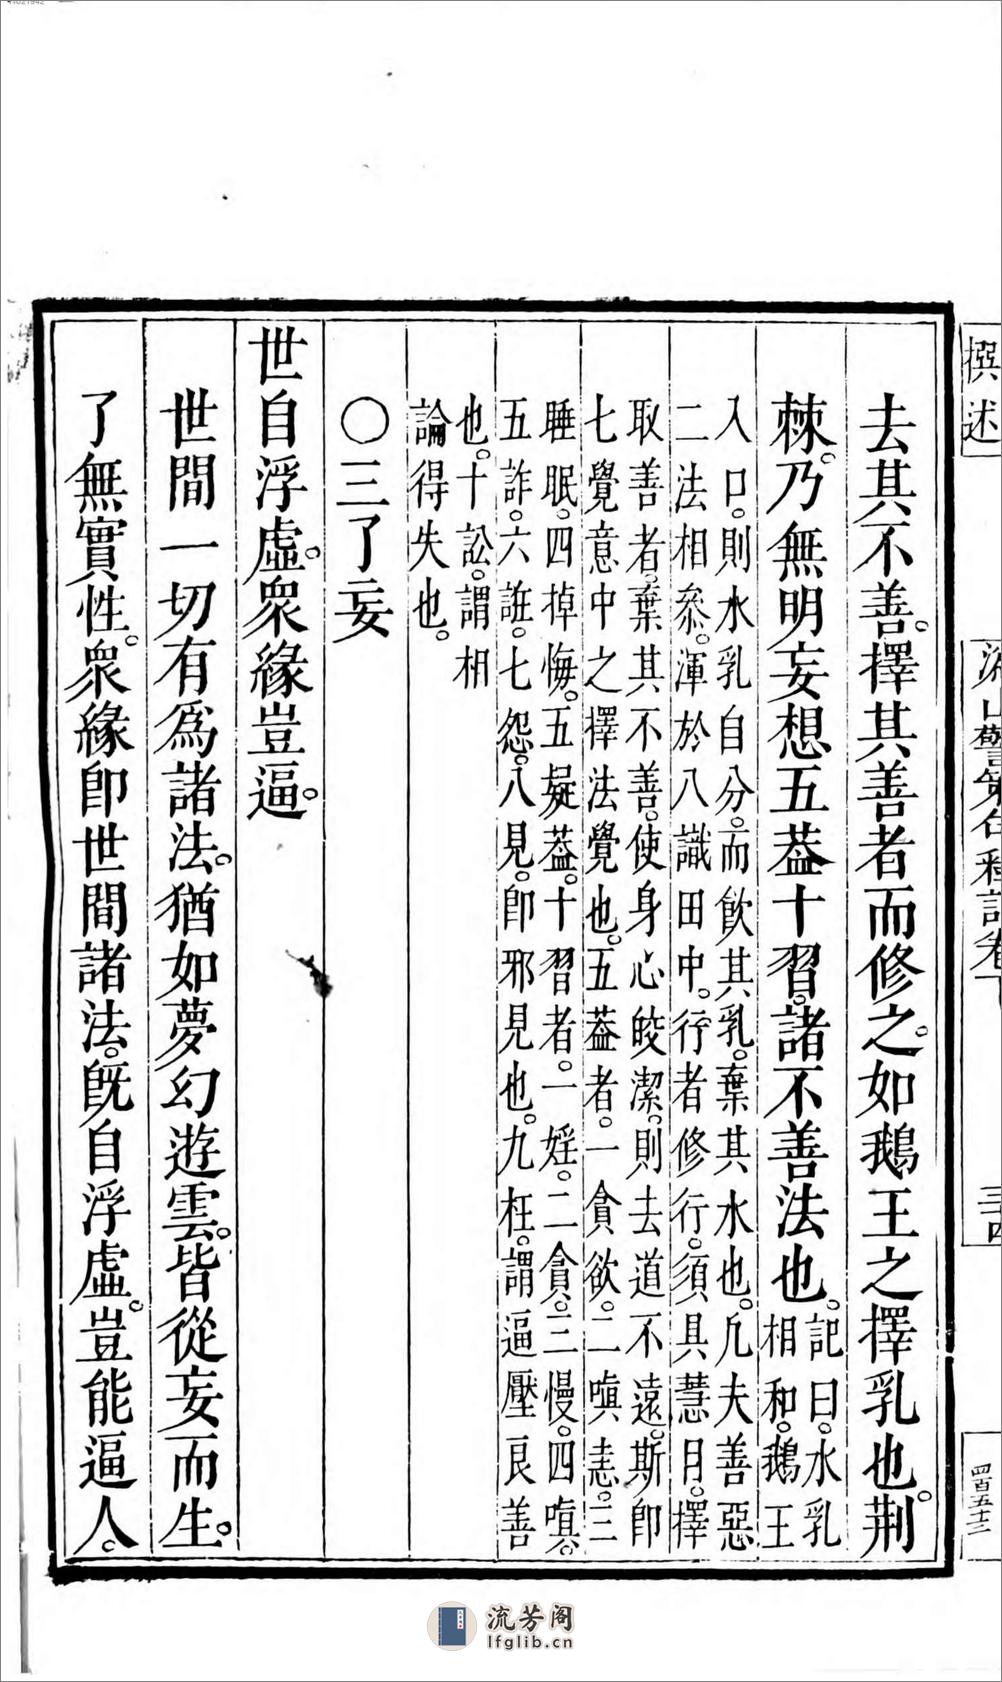 去其不善。擇其善者而修之。如鵝王之擇乳也。荆
棘。乃無明妄想五葢十習。諸不善法也。記曰。水乳
相和。鵝王
入口。則水乳自分。而飲其乳。棄其水也。凡夫善惡
二法相叅。渾於八識田中。行者修行。須具慧目。擇
取善者。棄其不善。使身心皎潔。則去道不遠。斯即
七覺意中之擇法覺也。五葢者。一貪欲。二嗔恚。三
睡眠。四掉悔。五疑葢。十習者。一婬。二貪。三慢。四嗔。
五詐。六誑。七怨。八見。即邪見也。九枉。謂逼壓良善
也。十訟。謂相
論得失也。
○三了妄
世自浮虛。眾緣豈逼。
世間一切有爲諸法。猶如夢幻遊雲。皆從妄而生。
了無實性。眾緣即世間諸法。旣自浮虛。豈能逼人。
撰述
警策句釋記卷下
三十四
四百五十三
流芳阁
lfglib.cn